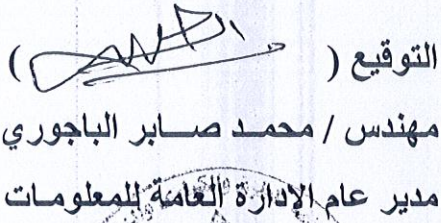 التوقيع ( )
مهندس / محمد صابر الباجوري
مدير عام الادارة العامة للمعلومات